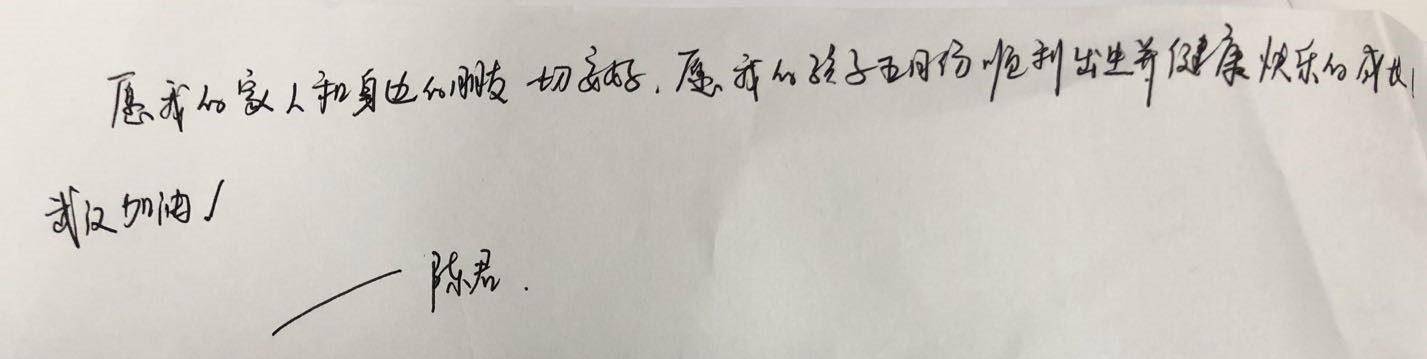 愿我的家人和身边的朋友一切安好，愿我的孩子五月份顺利出生并健康快乐的成长！
武汉加油！
——陈君.